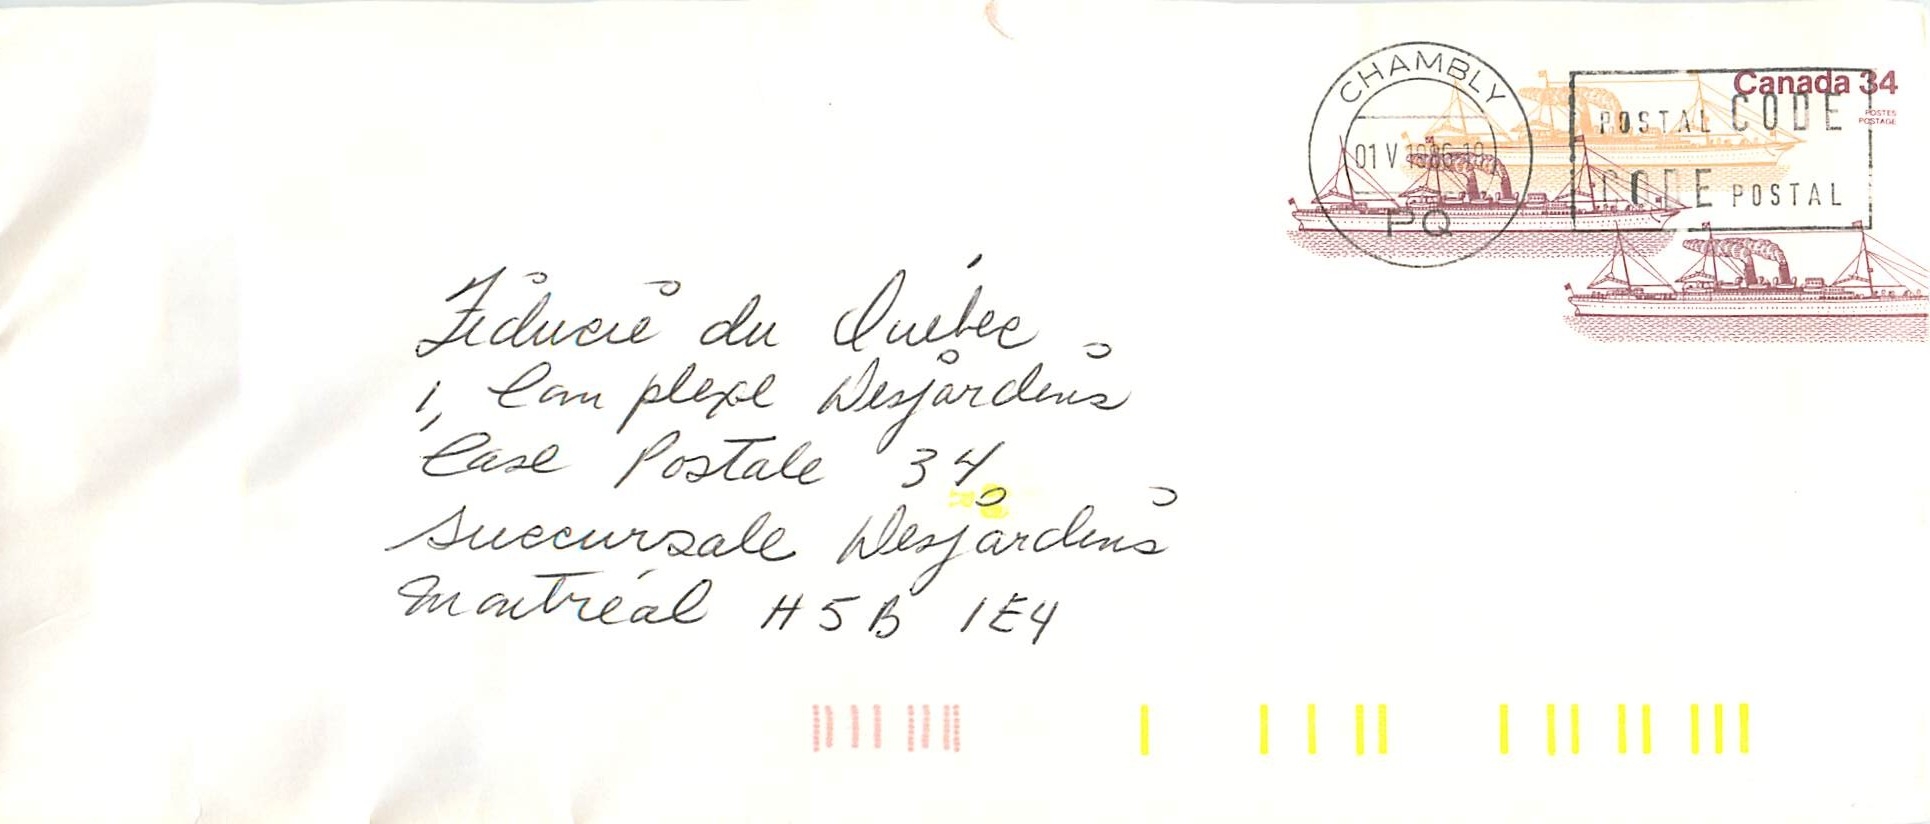 CHAMBLY
01 V 1986-19
PQ
Canada 34
POSTES
POSTAGE
POSTAL CODE
CODE POSTAL
Fiducie du Québec
1, Complexe Desjardins
Case Postale 34
Succursale Desjardins
Montréal H5B 1E4